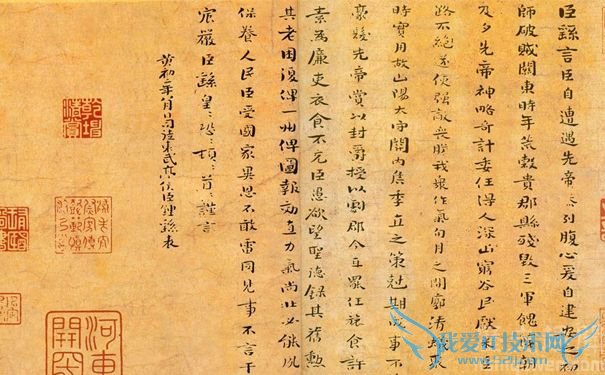 臣繇言臣自遭遇先帝忝列腹心爰自建安之初
師破賊關東時年荒穀貴郡縣殘毀三軍餽饟朝
及夕先帝神略奇計委任得人深山窮谷民獻米豆
路不絕遂使強敵喪膽我衆作氣旬月之間廓清蟻聚
時實用故山陽太守關內侯季直之策剋期成事不
豪髮先帝賞以封爵授以劇郡今直罷任旅食許
素為廉吏衣食不充臣愚欲望聖德錄其舊勳
其老困復俾一州俾圖報效直力氣尚壯必能夙
保養人民臣受國家異恩不敢雷同見事不言干
宸嚴臣繇皇〻恐〻頓〻首〻謹言
黃初二年八月日司徒東武亭侯臣鍾繇表
河東
我爱IT技术网